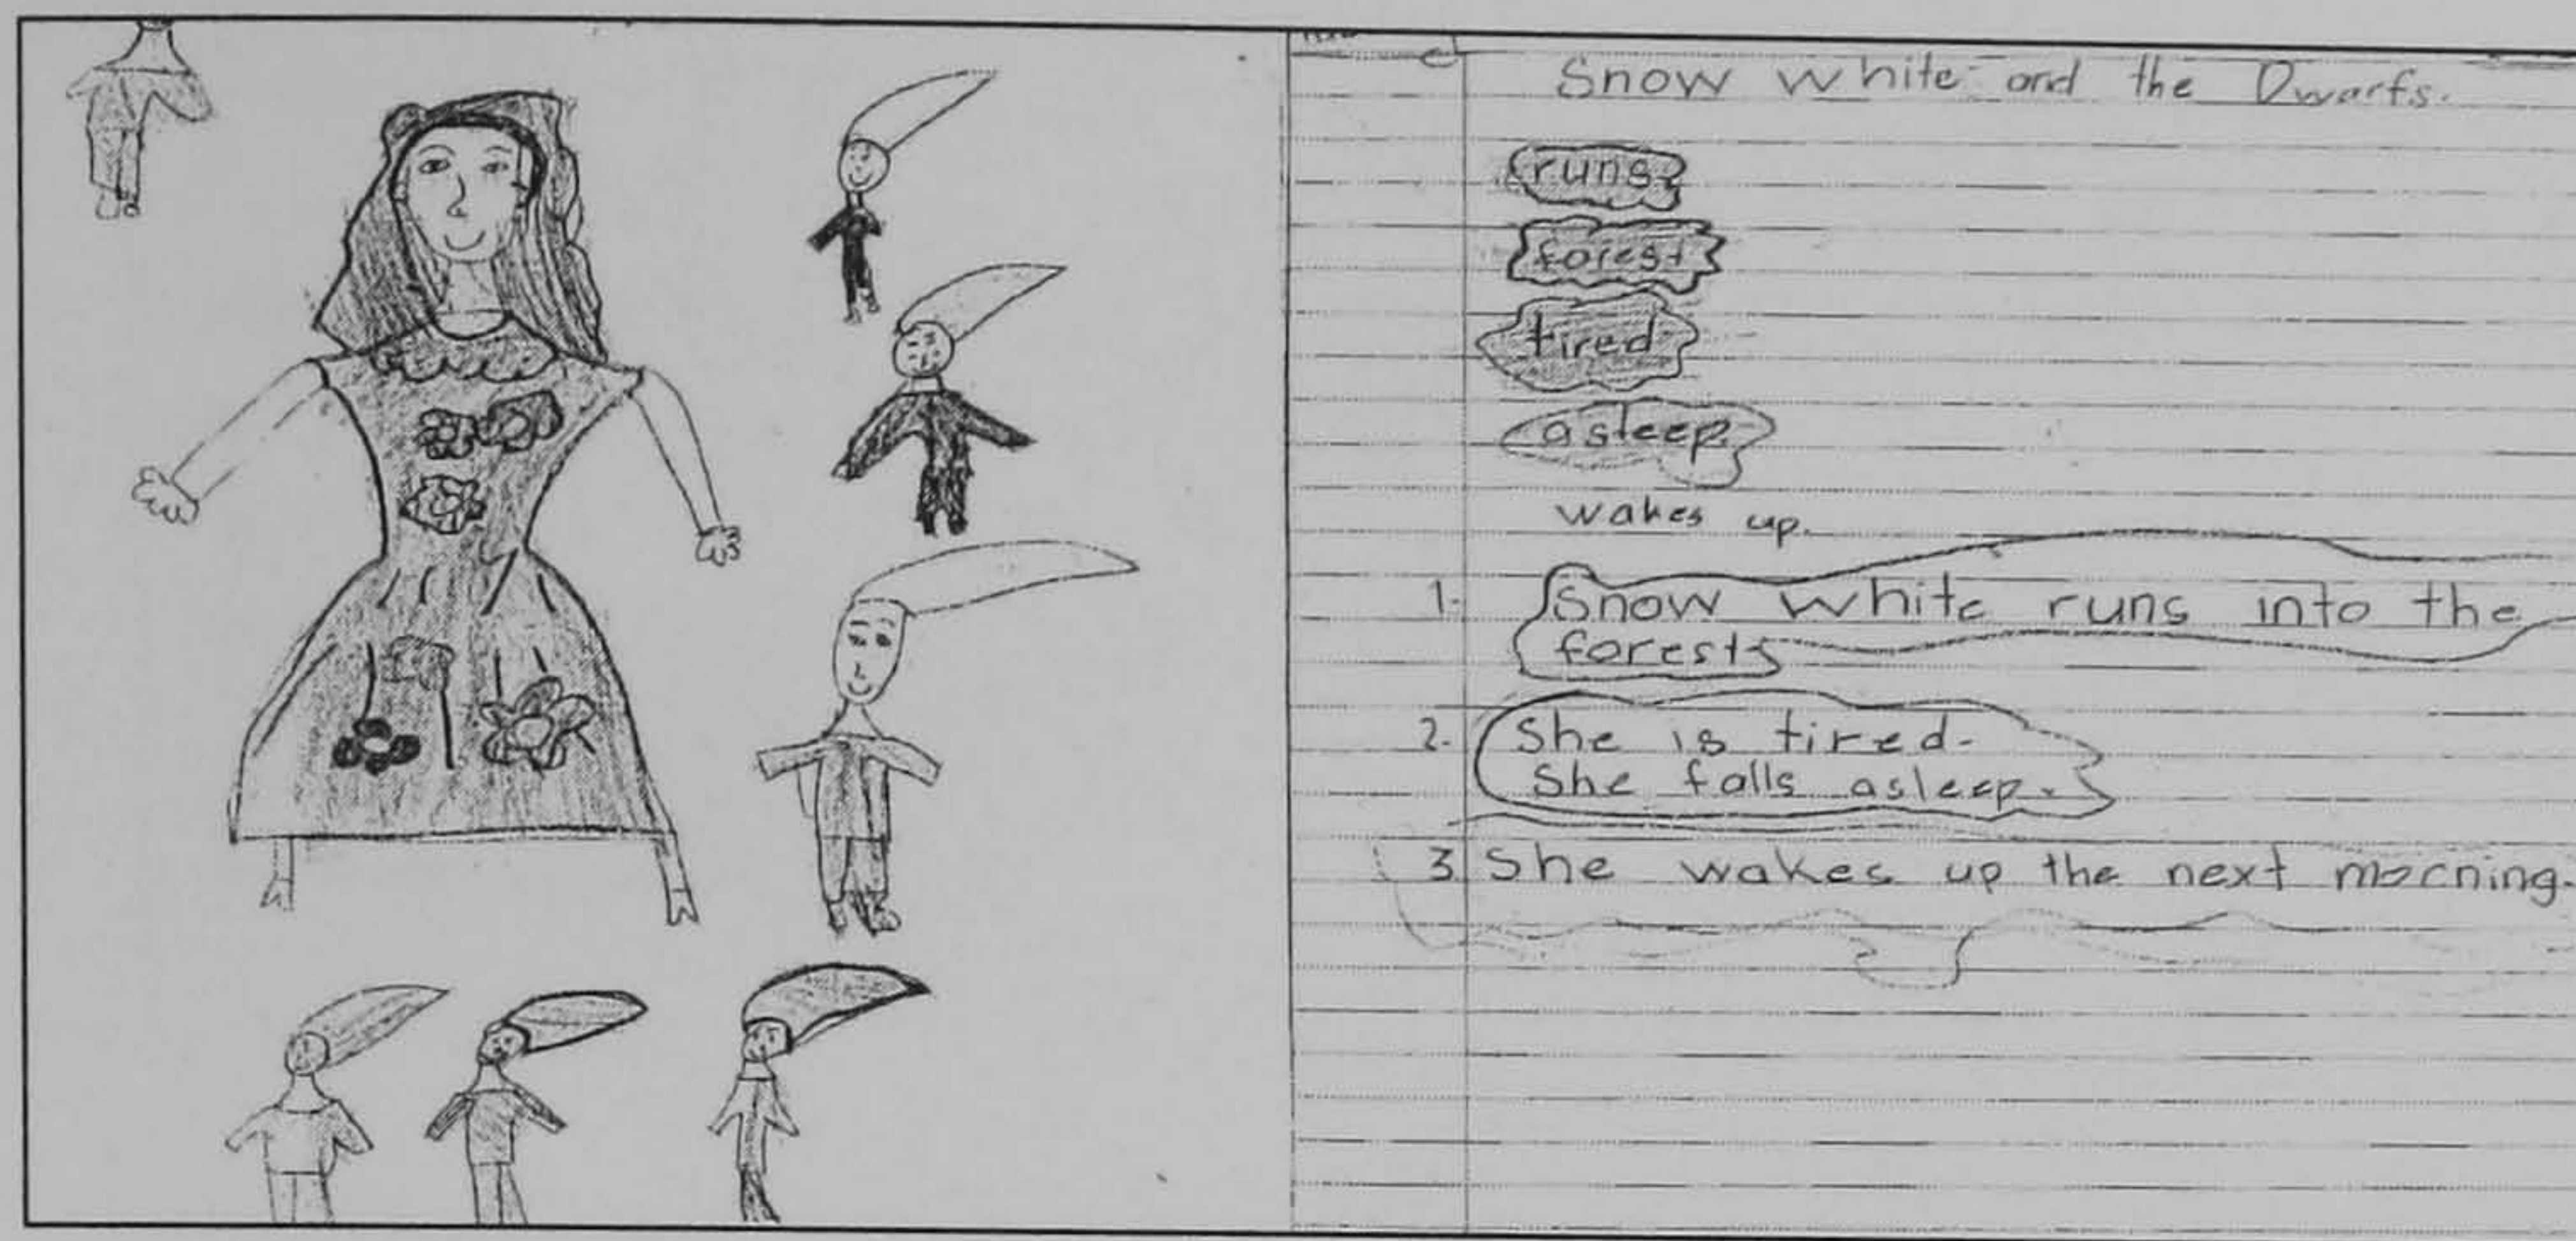 Snow white and the Dwarfs.
runs
forest
tired
asleep
wakes up.
1. Snow white runs into the
forest
2. She is tired.
She falls asleep.
3 She wakes up the next morning.